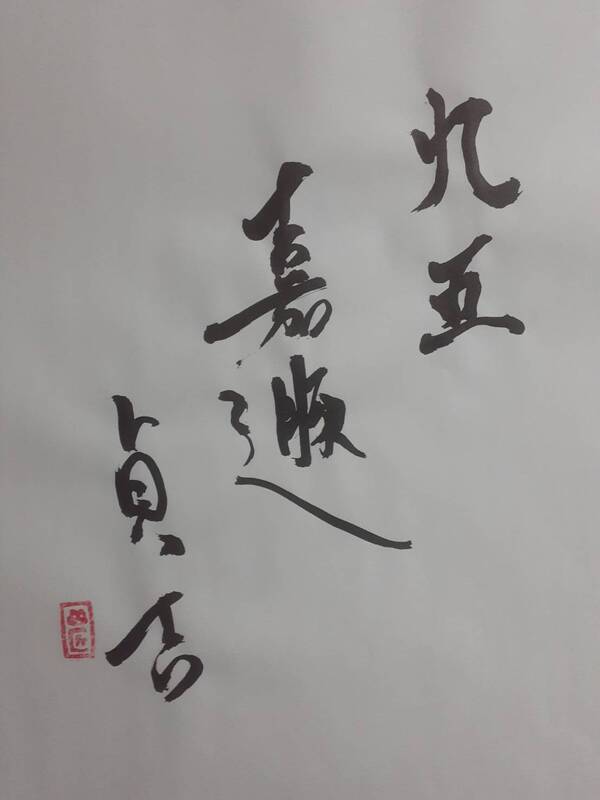 九五
嘉遯
貞吉